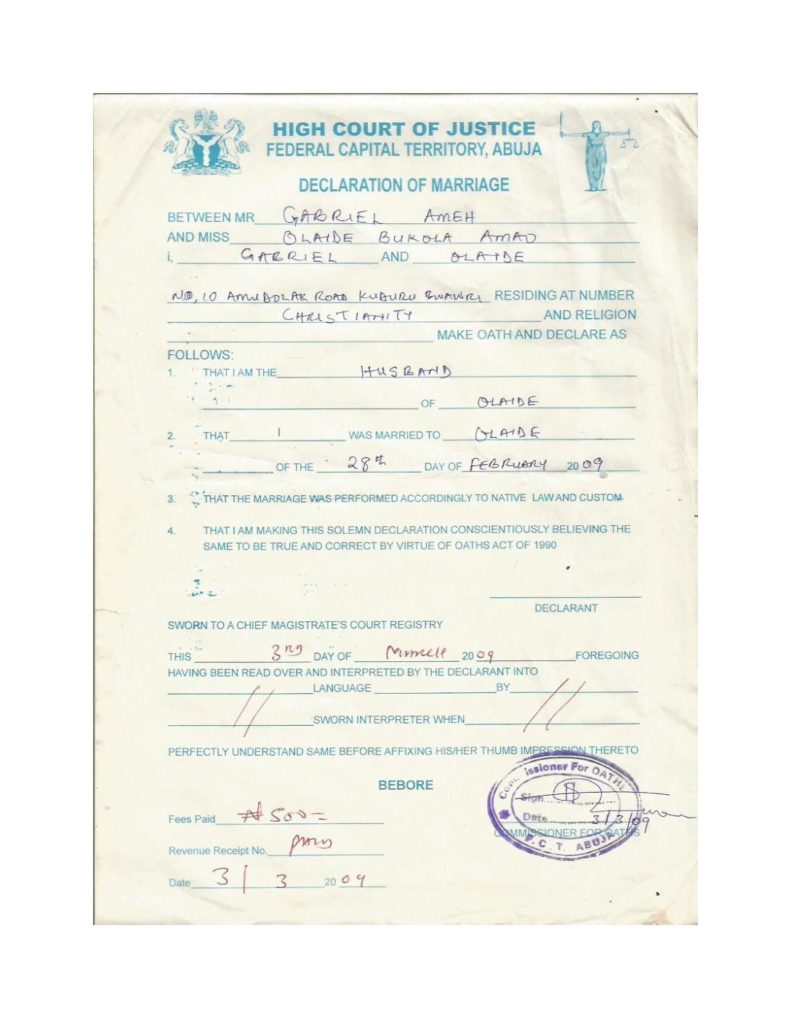 HIGH COURT OF JUSTICE
FEDERAL CAPITAL TERRITORY, ABUJA
DECLARATION OF MARRIAGE
BETWEEN MR GABRIEL AMEH
AND MISS OLAIDE BUKOLA AMAO
i, GABRIEL AND OLAIDE
NO, 10 ROAD KUBURU BWAWRI RESIDING AT NUMBER
CHRISTIANITY AND RELIGION
MAKE OATH AND DECLARE AS
FOLLOWS:
1. THAT I AM THE HUSBAND
OF OLAIDE
2. THAT I WAS MARRIED TO OLAIDE
OF THE 28th DAY OF FEBRUARY 2009
3. THAT THE MARRIAGE WAS PERFORMED ACCORDINGLY TO NATIVE LAW AND CUSTOM
4. THAT I AM MAKING THIS SOLEMN DECLARATION CONSCIENTIOUSLY BELIEVING THE
SAME TO BE TRUE AND CORRECT BY VIRTUE OF OATHS ACT OF 1990
DECLARANT
SWORN TO A CHIEF MAGISTRATE'S COURT REGISTRY
THIS 3rd DAY OF 2009 FOREGOING
HAVING BEEN READ OVER AND INTERPRETED BY THE DECLARANT INTO
LANGUAGE BY
SWORN INTERPRETER WHEN
PERFECTLY UNDERSTAND SAME BEFORE AFFIXING HIS/HER THUMB IMPRESSION THERETO
BEBORE
Commissioner For OATHS
Sign
Date 3/3/09
COMMISSIONER FOR OATHS
F.C.T. ABUJA
Fees Paid ₦500=
Revenue Receipt No.
Date 3/3 2009